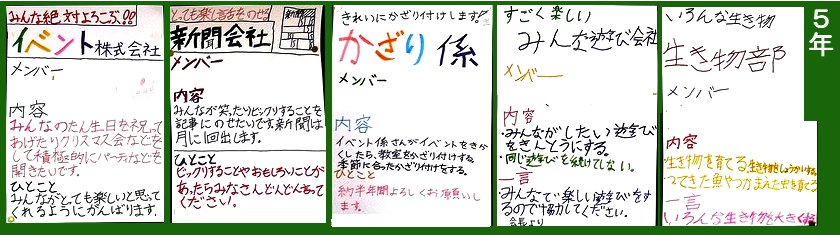 みんな絶対よろこぶ!!
イベント株式会社
メンバー
内容
みんなのたん生日を祝って
あげたりクリスマス会などを
して積極的にパーティなどを
開きたいです。
ひとこと
みんながとても楽しいと思って
くれるようにがんばります。
とっても楽しい話をのせる
新聞会社
新聞
メンバー
内容
みんなが笑ったりビックリすることを
記事にのせたいです。新聞は
月に1回出します。
ひとこと
ビックリすることやおもしろいことが
あったらみなさんどんどん言って
ください。
きれいにかざり付けします!
かざり係
メンバー
内容
イベント係さんがイベントをきか
くしたら、教室をかざり付けする。
季節に合ったかざり付けをする。
ひとこと
約半年間よろしくお願いし
ます。
すごく楽しい
みんな遊び会社
メンバー
内容
・みんながしたい遊びを
きんとうにする。
・同じ遊びを続けてしない。
一言
・みんなで楽しい遊びをす
るので協力してください。
会長より
いろんな生き物
生き物部
メンバー
内容
生き物を育てる。
つってきた魚やつかまえた虫を育てる
一言
いろんな生き物を大きく
5年